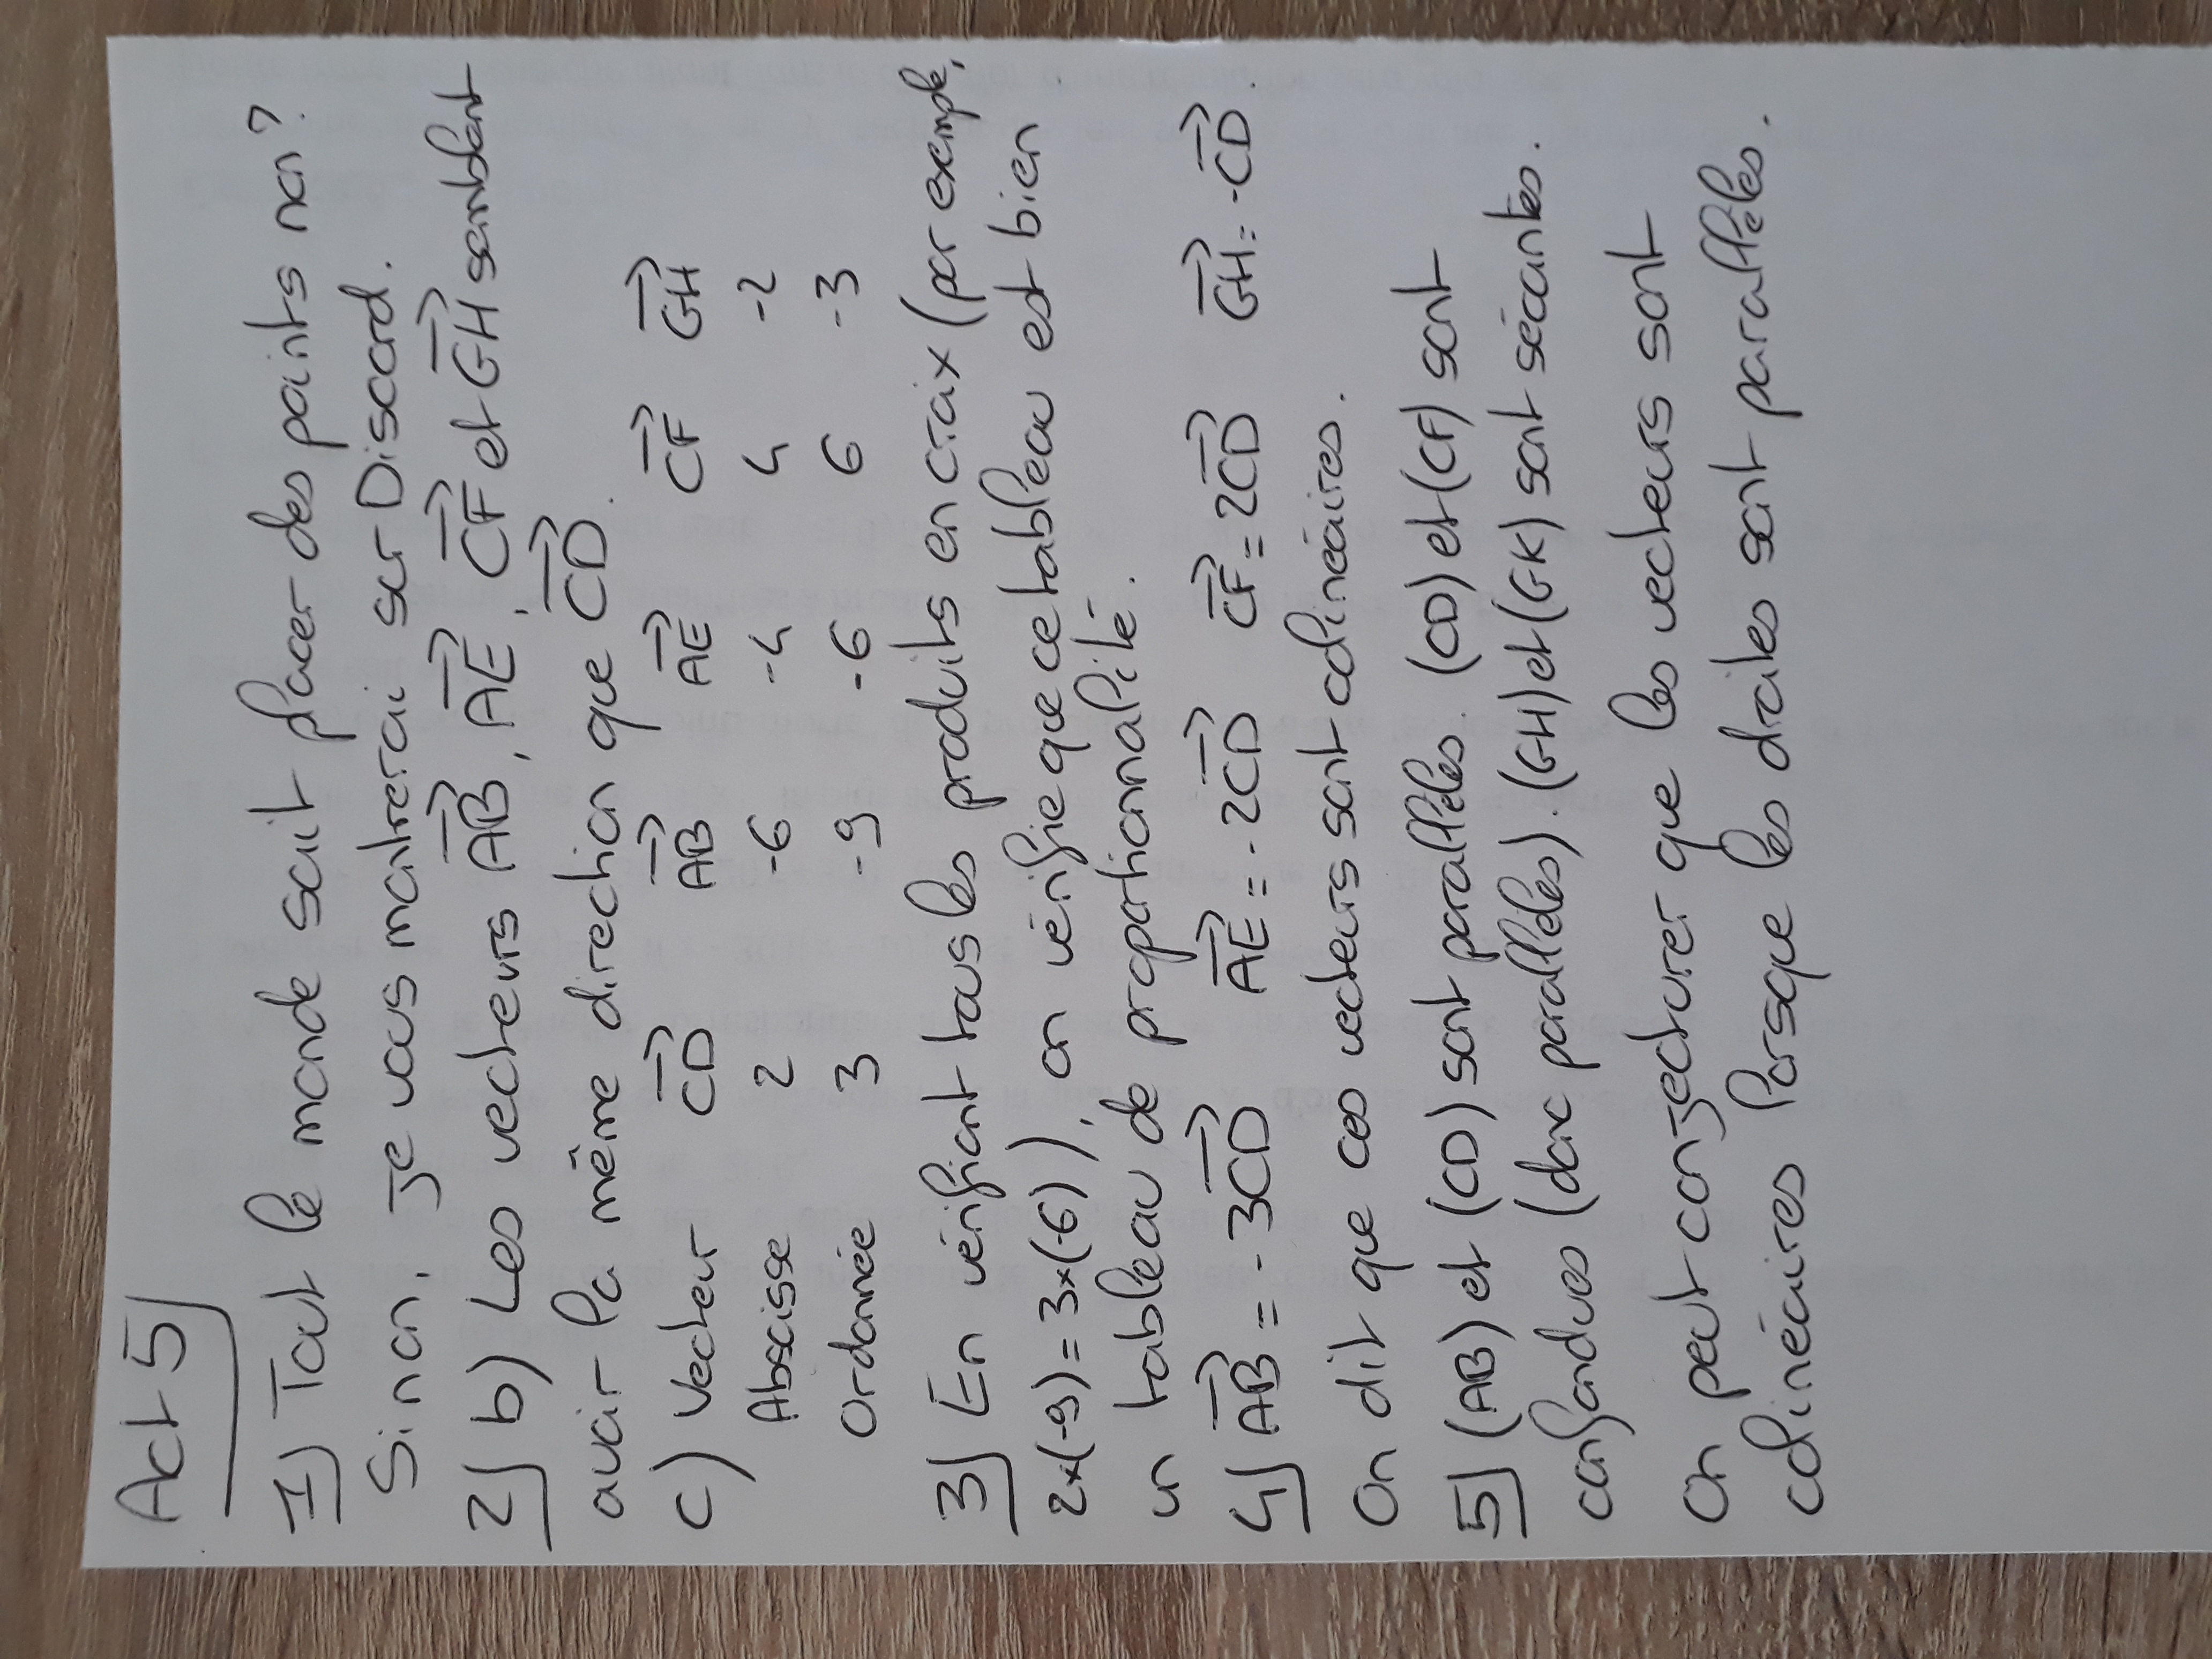 Act 5
1) Tout le monde sait placer des points non ?
Sinon, je vous montrerai sur Discord.
2) b) Les vecteurs \overrightarrow{AB}, \overrightarrow{AE}, \overrightarrow{CF} et \overrightarrow{GH} semblent
avoir la même direction que \overrightarrow{CD}.
c) Vecteur \overrightarrow{CD} \overrightarrow{AB} \overrightarrow{AE} \overrightarrow{CF} \overrightarrow{GH}
Abscisse 2 -6 -4 4 -2
Ordonnée 3 -9 -6 6 -3
3) En vérifiant tous les produits en croix (par exemple,
2×(-9) = 3×(-6)), on vérifie que ce tableau est bien
un tableau de proportionnalité.
4) \overrightarrow{AB} = -3\overrightarrow{CD} \overrightarrow{AE} = -2\overrightarrow{CD} \overrightarrow{CF} = 2\overrightarrow{CD} \overrightarrow{GH} = -\overrightarrow{CD}.
On dit que ces vecteurs sont colinéaires.
5) (AB) et (CD) sont parallèles. (CD) et (CF) sont
confondues (donc parallèles). (GH) et (GK) sont sécantes.
On peut conjecturer que les vecteurs sont
colinéaires lorsque les droites sont parallèles.